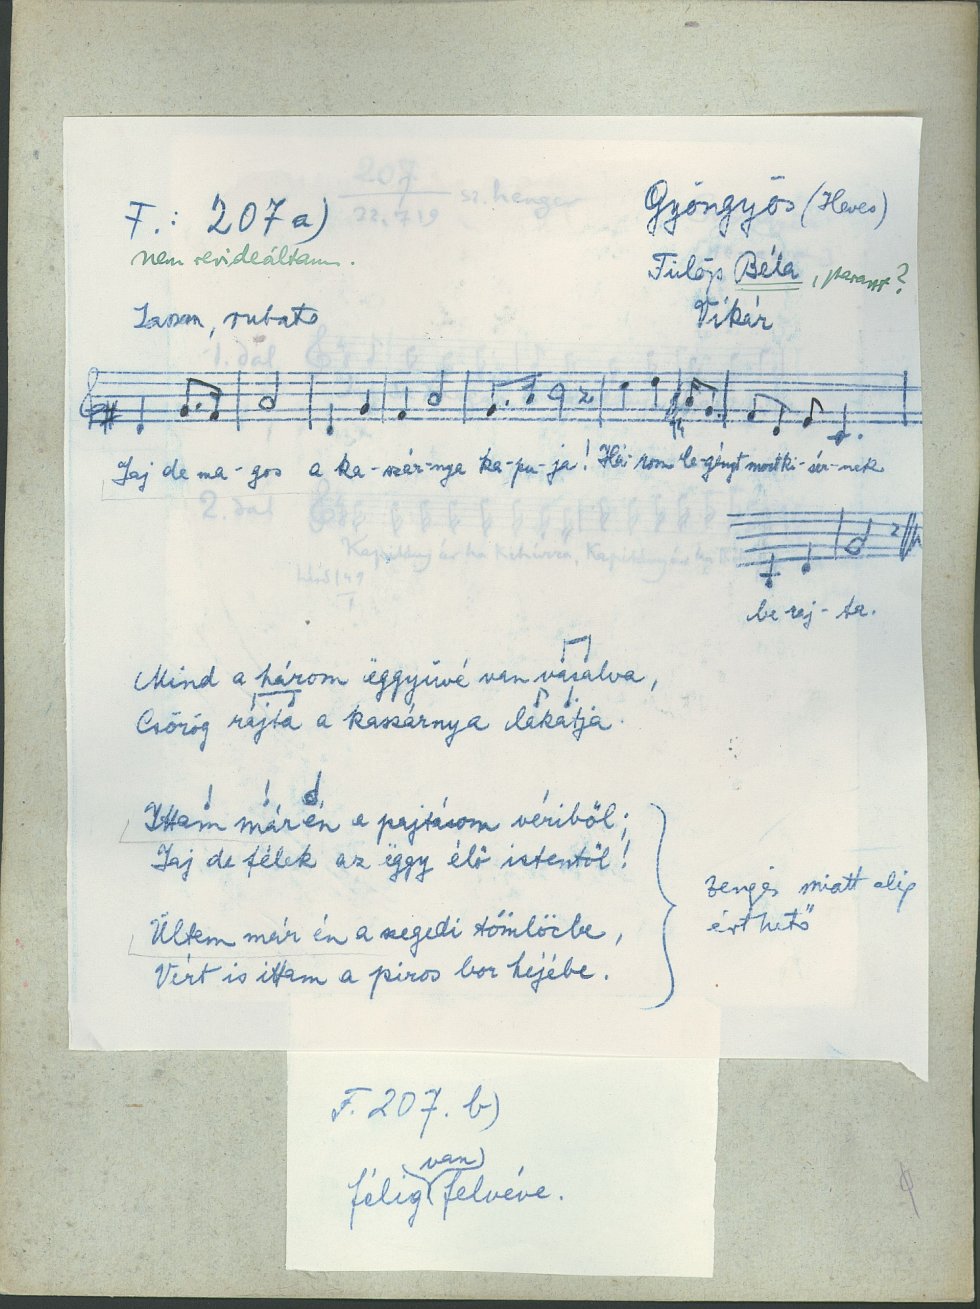 F.: 207a)
nem revideáltam.
Gyöngyös (Heves)
Fülöp Béla, paraszt?
Vikár
Lassan, rubato
Jaj de ma-gos a ka-szár-nya ka-pu-ja! Há-rom le-gényt most ki-sér-nek
be raj-ta.
Mind a három ëggyüvé van vasalva,
Csörög rajta a kaszárnya lakatja.
Ittam már én a pajtásom véribűl;
Jaj de félek az ëggy élő istentől!
Ültem már én a szegedi tömlöcbe,
Vért is ittam a piros bor hejébe.
zengés miatt alig
érthető
F. 207. b)
félig van felvéve.
207
sz. henger
1. dal
2. dal